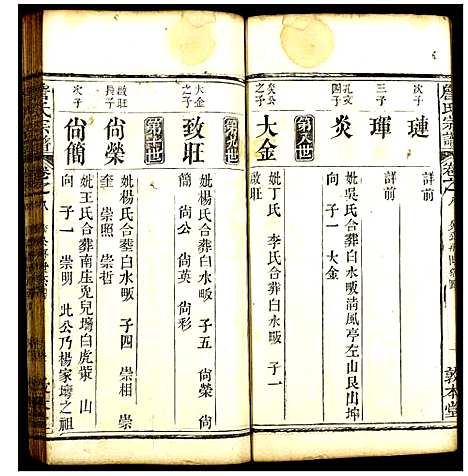 詹氏宗譜
卷之八
敦本堂
次子
璉
詳前
三子
琿
詳前
孔文
四子
炎
妣吳氏合葬白水畈清風亭左山艮山坤
向 子一 大金
第八世
炎公
之子
大金
妣丁氏 李氏合葬白水畈 子一
致旺
第九世
大金
之子
致旺
妣楊氏合葬白水畈 子五 尙榮 尙
簡 尙公 尙英 尙彩
第十世
致旺
長子
尙榮
妣楊氏合葬白水畈 子四 崇相 崇
奎 崇照 崇哲
次子
尙簡
妣王氏合葬南庄兎兒塆白虎 山
向 子一 崇明 此公乃楊家塆之祖
詹氏宗譜
卷之八